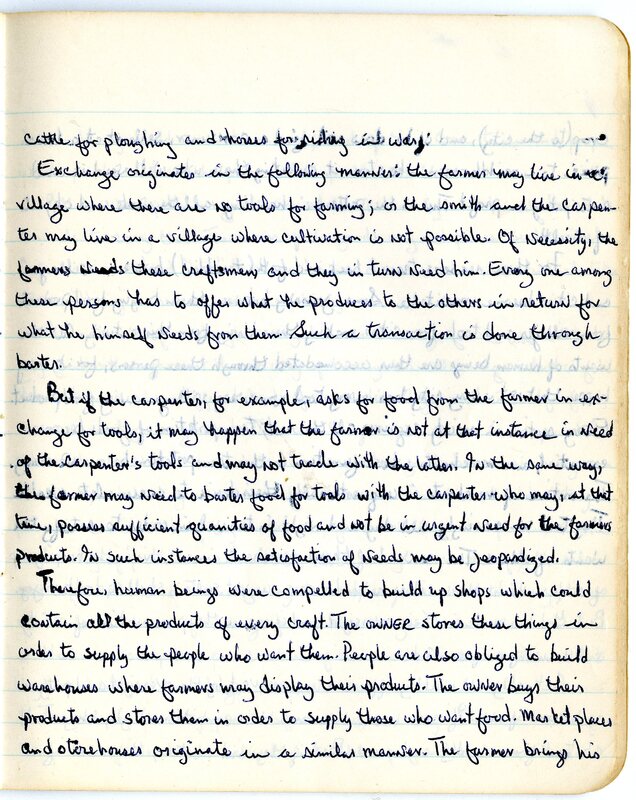 cattle for ploughing and horses for riding in wars.
Exchange originates in the following manner: the farmer may live in a
village where there are no tools for farming; or the smith and the carpen-
ter may live in a village where cultivation is not possible. Of necessity, the
farmers needs these craftsmen and they in turn need him. Every one among
these persons has to offer what he produces to the others in return for
what he himself needs from them. Such a transaction is done through
barter.
But if the carpenter, for example, asks for food from the farmer in ex-
change for tools, it may happen that the farmer is not at that instance in need
of the carpenter's tools and may not trade with the latter. In the same way,
the farmer may need to barter food for tools with the carpenter who may, at that
time, possess sufficient quantities of food and not be in urgent need for the farmers
products. In such instances the satisfaction of needs may be jeopardized.
Therefore, human beings were compelled to build up shops which could
contain all the products of every craft. The OWNER stores these things in
order to supply the people who want them. People are also obliged to build
warehouses where farmers may display their products. The owner buys their
products and stores them in order to supply those who want food. Market places
and storehouses originate in a similar manner. The farmer brings his